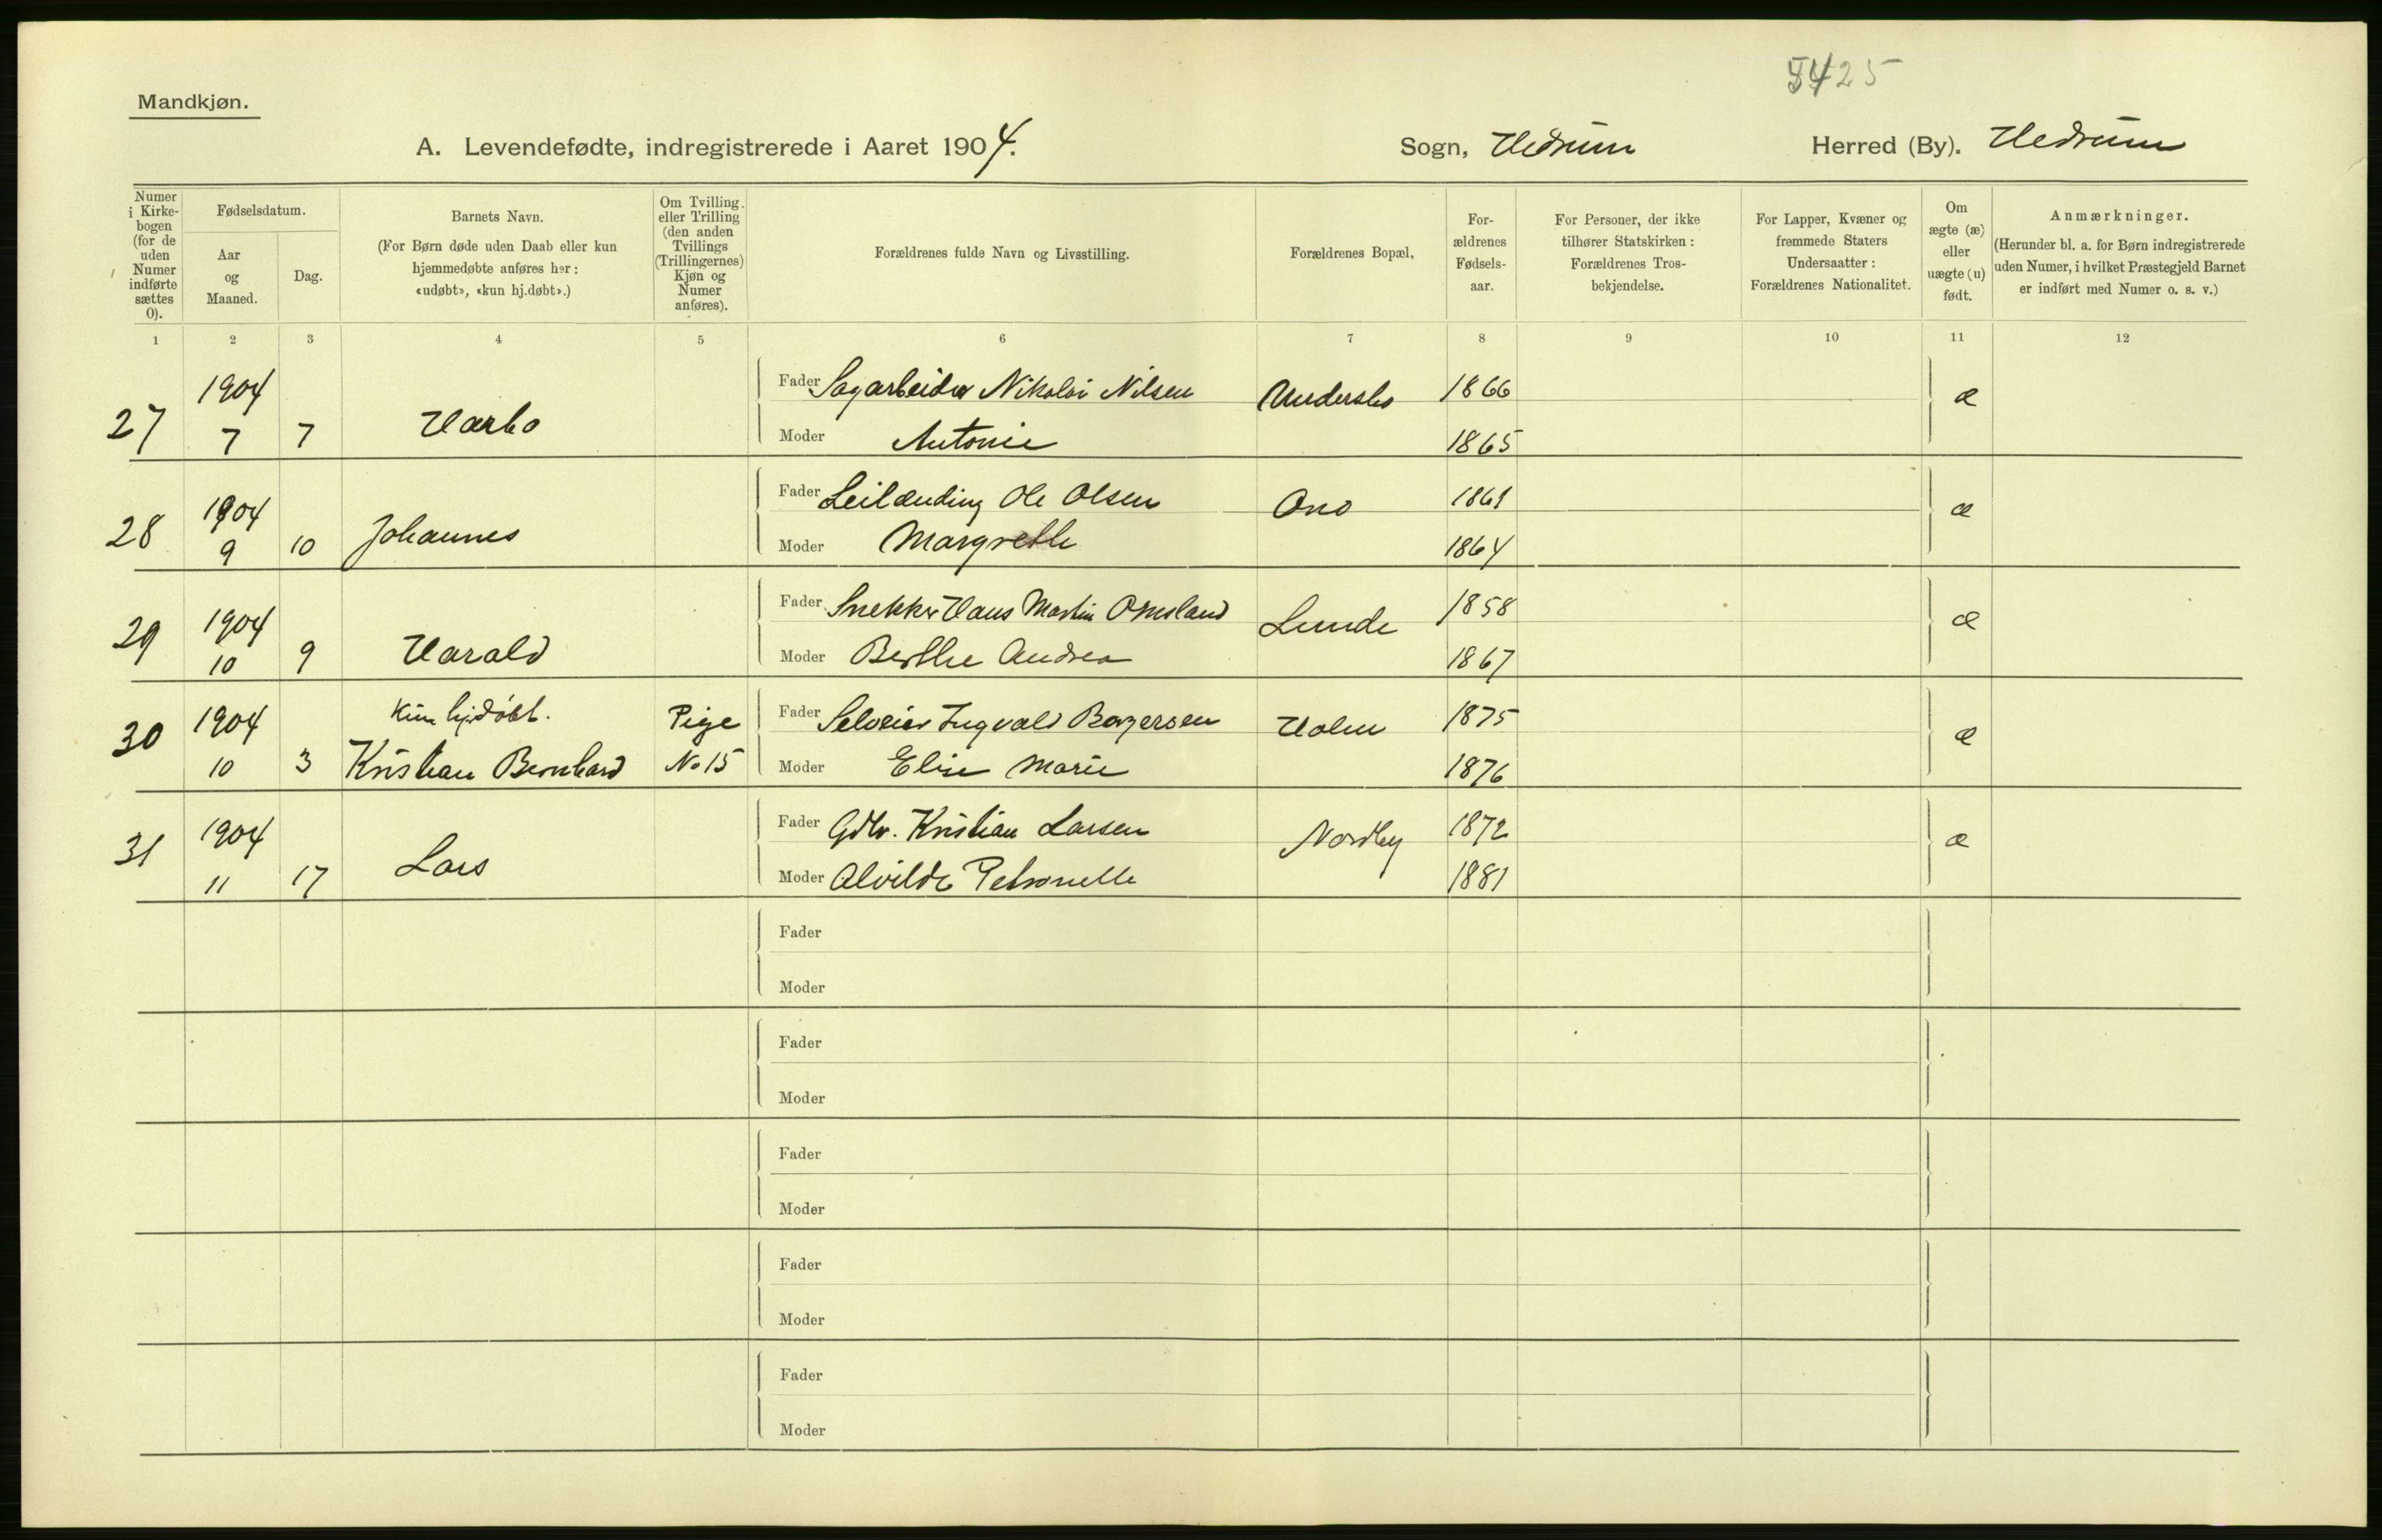 5425
Mandkjøn.
A. Levendefødte, indregistrerede i Aaret 1904. Sogn, Hedrum Herred (By). Hedrum
Numer i Kirke-bogen (for de uden Numer indførte sættes 0).
Fødselsdatum.
Aar og Maaned.
Dag.
Barnets Navn.
(For Børn døde uden Daab eller kun
hjemmedøbte anføres her:
«udøbt», «kun hj.døbt».)
Om Tvilling eller Trilling (den anden Tvillings (Trillingernes) Kjøn og Numer anføres).
Forældrenes fulde Navn og Livsstilling.
Forældrenes Bopæl,
For-ældrenes Fødsels-aar.
For Personer, der ikke
tilhører Statskirken:
Forældrenes Tros-
bekjendelse.
For Lapper, Kvæner og
fremmede Staters
Undersaatter:
Forældrenes Nationalitet.
Om ægte (æ) eller uægte (u) født.
Anmærkninger.
(Herunder bl. a. for Børn indregistrerede
uden Numer, i hvilket Præstegjeld Barnet
er indført med Numer o. s. v.)
1 2 3 4 5 6 7 8 9 10 11 12
1904 Fader Sagarbeider Nikolai Nilsen 1866 æ
27 7 7 Moder Antonie 1865
1904 Fader Leilænding Ole Olsen Ono 1861 æ
28 9 10 Johannes Moder Margrethe 1864
1904 Fader Snekker Hans Martin Omsland Lunde 1858 æ
29 10 9 Harald Moder Berthe Andrea 1867
1904 Kun hj.døbt. Pige Fader Selveier Ingvald Borgersen Holm 1875 æ
30 10 3 Kristian Bernhard No 15 Moder Elise Marie 1876
1904 Fader Gdbr. Kristian Larsen Nordby 1872 æ
31 11 17 Lars Moder Alvilde Petronelle 1881
Fader
Moder
Fader
Moder
Fader
Moder
Fader
Moder
Fader
Moder